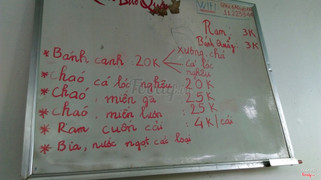 Bảo Quán
Ram 3K
Bánh Quẩy 3K
* Bánh canh 20K
xương, chả
cá lóc
nghêu
* Cháo cá lóc, nghêu : 20K
* Cháo : miến gà 25K
* Cháo : miến lươn : 25K
* Ram cuốn cải : 4K/cái
* Bia, nước ngọt các loại